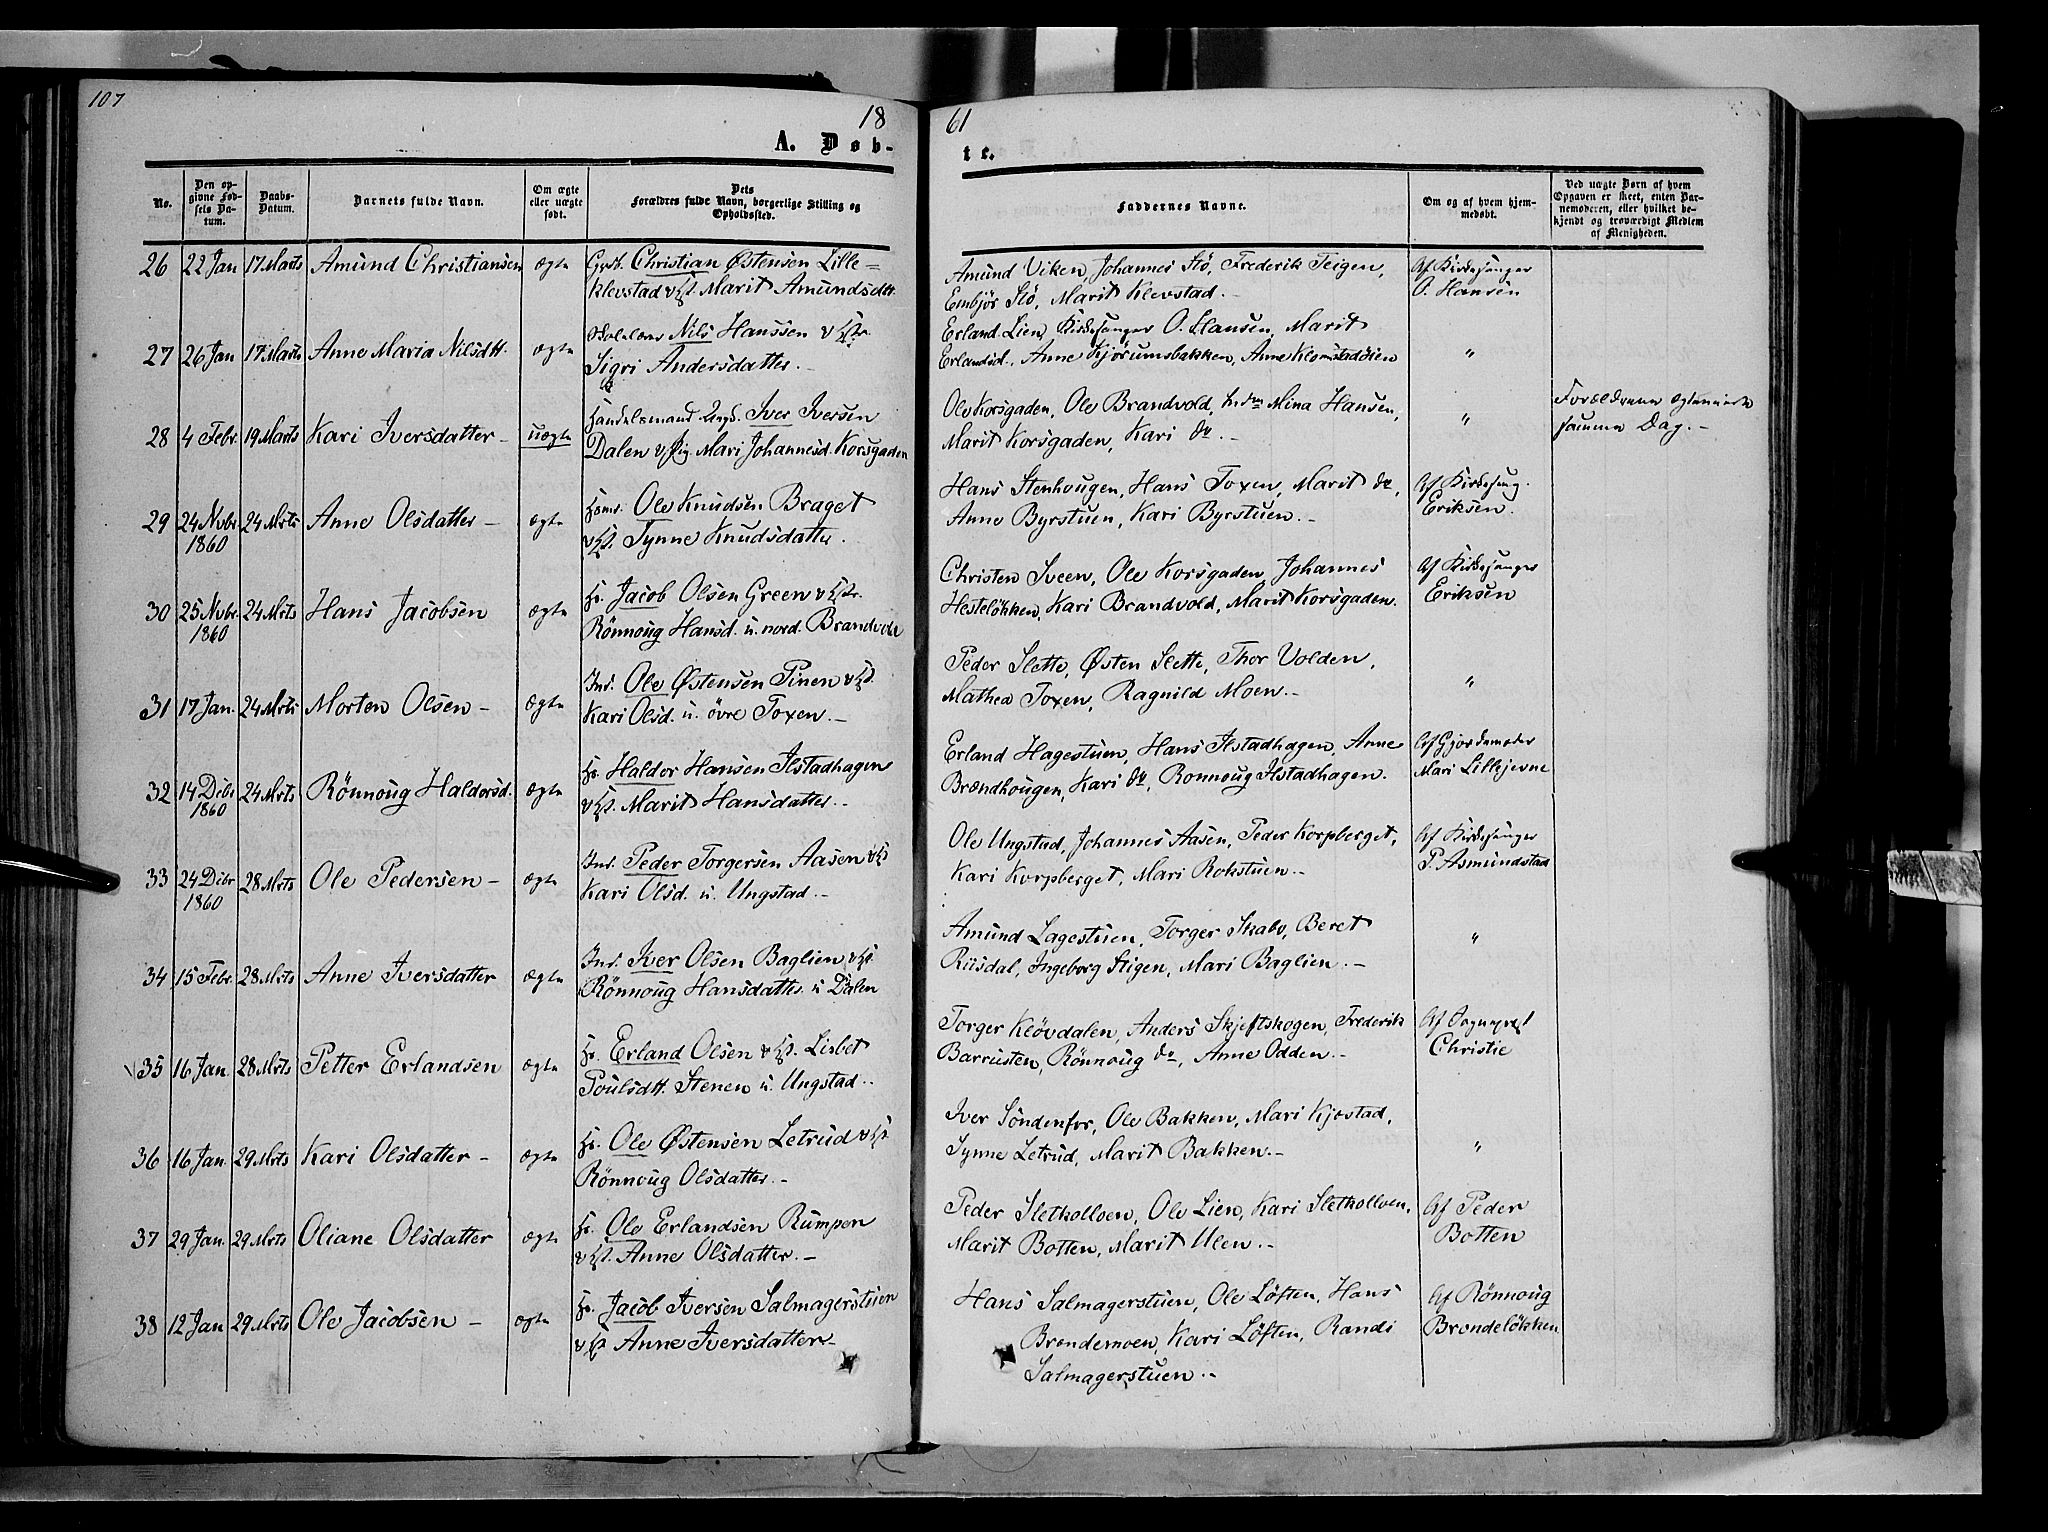 107
18 61
A. Døb- te.
No. Den opgivne Fødsels Datum. Daabs-Datum. Barnets fulde Navn. Om ægte eller uægte født. Dets Forældres fulde Navn, borgerlige Stilling og Opholdssted. Faddernes Navne. Om og af hvem hjemmedøbt. Ved uægte Børn af hvem Opgaven er skeet, enten Barnemoderen, eller hvilket bekjendt og troværdigt Medlem af Menigheden.
26 22 Jan 17 Marts Amund Christiansen ægte Christian Østensen Lille=
klevstad Marit Amundsdtt.
Amund Viken, Johannes Stö, Frederik Teigen,
Embjör Stö, Marit Klevstad.-
Af Kirkesanger
O. Hansen
27 26 Jan 17 Marts Anne Maria Nilsdtt. ægte Nils Hanssen
Sigri Andersdatter.-
Erland Lien, Kirkesanger O. Hansen, Marit
Erlandsd., Anne Kjörumsbakken, Anne Klomstadöien
"
28 4 Febr. 19 Marts Kari Iversdatter- uægte Handelsmand Ungk. Iver Iversen
Dalen & Pig. Mari Johannesd. Korsgaden
Ole Korsgaden, Ole Brandvold, Mina Hansen,
Marit Korsgaden, Kari do.-
"
Forældrene ægteviede
samme Dag.-
29 24 Nvbr. 1860 24 Mrts Anne Olsdatter- ægte Ole Knudsen Braget
Synne Knudsdatter.
Hans Stenhougen, Hans Toxen, Marit do,
Anne Byrstuen, Kari Byrstuen.-
Af Kirkesang.
Eriksen.
30 25 Nvbr. 1860 24 Mrts Hans Jacobsen ægte Jacob Olsen Green
Rönnoug Hansd. u. nord. Brandvold
Christen Sveen, Ole Korsgaden, Johannes
Hestelökken, Kari Brandvold, Marit Korsgaden.
Af Kirkesanger
Eriksen
31 17 Jan. 24 Mrts Morten Olsen- ægte Ind. Ole Østensen Pinen
Kari Olsd. u. övre Toxen.-
Peder Slette, Østen Slette, Thor Volden,
Mathea Toxen, Ragnild Moen.-
"
32 14 Dcbr 1860 24 Mrts Rönnoug Haldorsd. ægte Haldor Hansen Ilstadhagen
Marit Hansdatter.-
Erland Hagestuen, Hans Ilstadhagen, Anne
Brændhougen, Kari do, Ronnoug Ilstadhagen.
Af Gjordemoder
Mari Lillejevne
33 24 Dcbr 1860 28 Mrts Ole Pedersen- ægte Ind. Peder Torgersen Aasen
Kari Olsd. u. Ungstad.-
Ole Ungstad, Johannes Aasen, Peder Korpberget,
Kari Korpberget, Mari Rokstuen.-
Af Kirkesanger
P. Asmundstad
34 15 Febr. 28 Mrts Anne Iversdatter ægte Ind. Iver Olsen Baglien
Rönnoug Hansdatter u Dalen
Amund Lagestuen, Torger Skabo, Beret
Riisdal, Ingeborg Stigen, Mari Baglien.-
"
35 16 Jan. 28 Mrts Petter Erlandsen ægte Erland Olsen Lisbet
Poulsdtt. Stenen u. Ungstad.
Torger Klövdalen, Anders Skjeftskogen, Frederik
Barrusten, Rönnoug do, Anne Odden.-
Af Sognepræst
Christie
36 16 Jan. 29 Mrts Kari Olsdatter- ægte Ole Østensen Letrud
Rönnoug Olsdatter.-
Iver Söndenfor, Ole Bakken, Mari Kjøstad,
Synne Letrud, Marit Bakken.-
"
37 29 Jan. 29 Mrts Oliane Olsdatter ægte Ole Erlandsen Rumpen
Anne Olsdatter.-
Peder Sletkolloen, Ole Lien, Kari Sletkolloen,
Marit Botten, Marit Ulen.-
Af Peder
Botten
38 12 Jan 29 Mrts Ole Jacobsen- ægte Jacob Iversen Salmagerstuen
Anne Iversdatter-
Hans Salmagerstuen, Ole Löften, Hans
Brendemoen, Kari Löften, Randi
Salmagerstuen.-
Af Rönnoug
Brendelökken